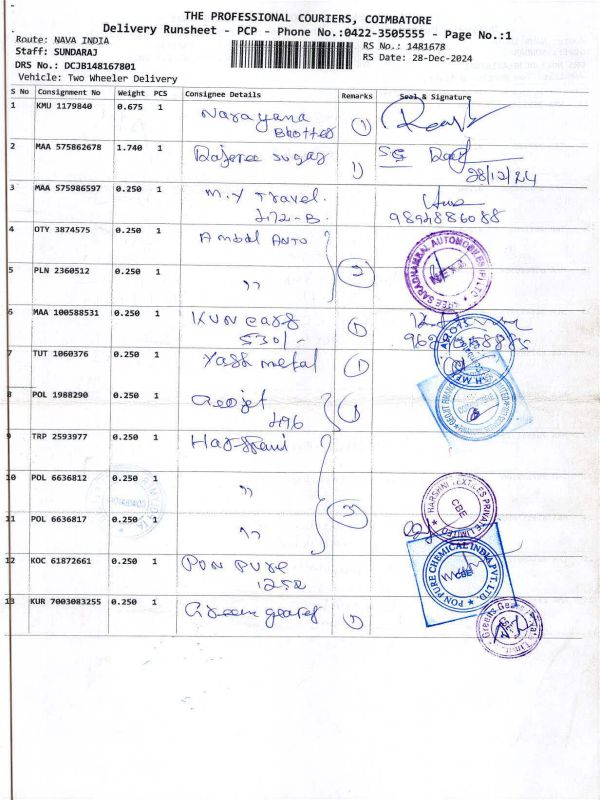 THE PROFESSIONAL COURIERS, COIMBATORE
Delivery Runsheet - PCP - Phone No.:0422-3505555 - Page No.:1
Route: NAVA INDIA
Staff: SUNDARAJ
DRS No.: DCJB148167801
Vehicle: Two Wheeler Delivery
RS No.: 1481678
RS Date: 28-Dec-2024
S No Consignment No Weight PCS Consignee Details Remarks Seal & Signature
1 KMU 1179840 0.675 1 Narayana
2 MAA 575862678 1.740 1 Rajsree sugar 1)
28/12/24
3 MAA 575986597 0.250 1 M.Y Travel.
472-B. 9894886088
4 OTY 3874575 0.250 1 Ambal Auto
SREE SARADHAMBAL AUTOMOBILES (P) LTD
NEXA
5 PLN 2360512 0.250 1 " 2
6 MAA 100588531 0.250 1 KUN cars 1)
530/-
7 TUT 1060376 0.250 1 Yash metal 1
8 POL 1988290 0.250 1 Geojit 1)
496
9 TRP 2593977 0.250 1 Harshni
10 POL 6636812 0.250 1 "
HARSHNI TEXTILES PRIVATE LIMITED
CBE
11 POL 6636817 0.250 1 " 3
12 KOC 61872661 0.250 1 PON PURE
1252
PON PURE CHEMICAL INDIA PVT. LTD.
CBE
13 KUR 7003083255 0.250 1 Green gears 1)